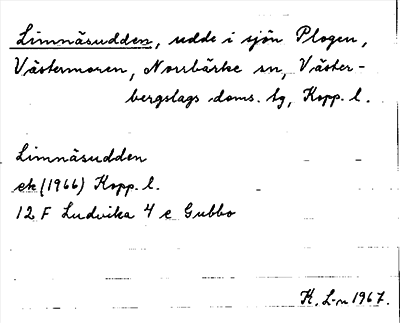 Limnäsudden, udde i sjön Plogen,
Västermoren, Norrbärke sn, Väster-
bergslags doms. tg, Kopp. l.
Limnäsudden
ek (1966) Kopp. l.
12 F Ludvika 4 e Gubbo
K. L-n 1967.